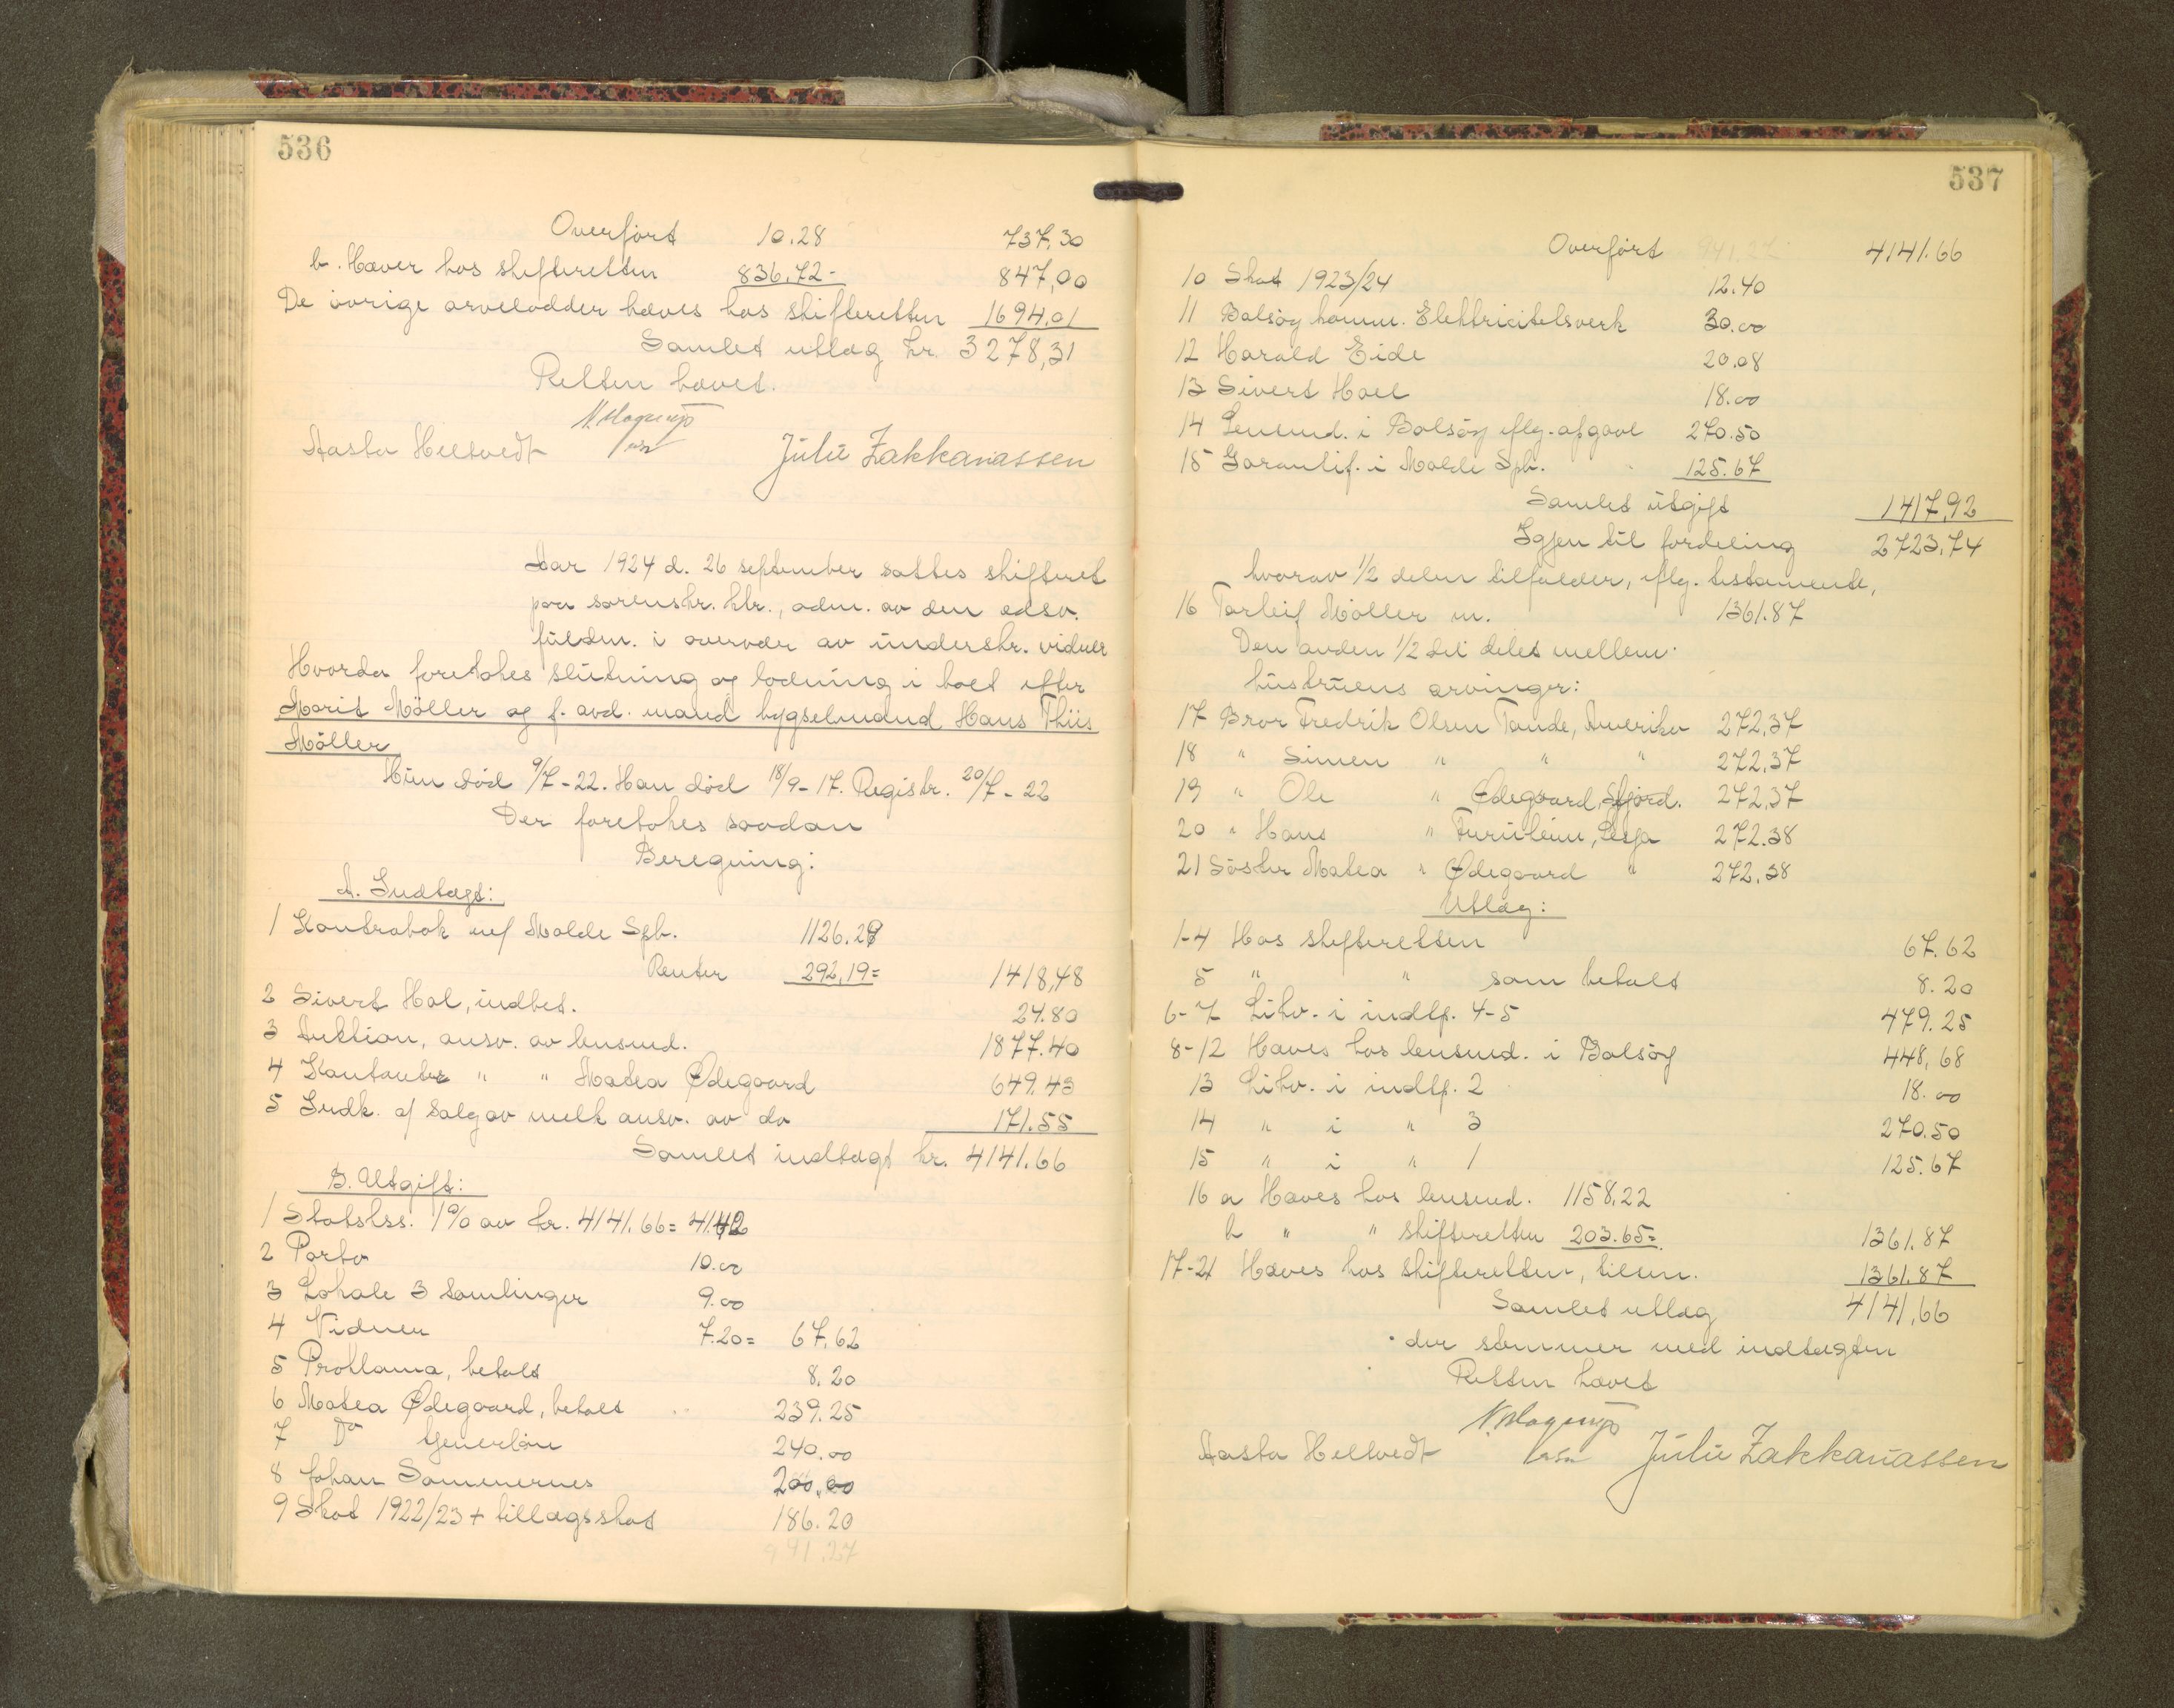 536
Overført 10.28 737,30
b. Hæver hos skifteretten 836.72- 847,00
De øvrige arvelodder hæves hos skifteretten 1694,01
Samlet utlæg kr. 3278,31
Retten hævet.
Aasta Heltvedt Julie Zakkariassen
Aar 1924 d. 26 september sattes skifteret
paa sorenskr. ktr., adm. av den edsv.
fuldm. i overvær av underskr. vidner
Hvorda foretokes slutning og lodning i boet efter
Marit Möller og f. avd. mand bygselmand Hans Thiis
Möller
Hun död 9/7-22. Han död 18/9-17. Registr. 20/7-22
Der foretokes saadan
Beregning:
A. Indtægt:
1 Kontrabok m/ Molde Spb. 1126.29
Renter 292,19= 1418,48
2 Sivert Hol, indbet. 24.80
3 Auktion, ansv. av lensmd. 1877.40
4 Kontanter " " Matea Ødegaard 649.43
5 Indk. af salg av melk ansv. av do 171.55
Samlet indtægt kr. 4141.66
B. Utgift:
1 Statskss. 1% av kr. 4141.66= 41.42
2 Porto 10.00
3 Lokale 3 samlinger 9.00
4 Vidner 7.20= 67,62
5 Proklama, betalt 8.20
6 Matea Ødegaard, betalt 239.25
7 Do tjenerlön 240.00
8 Johan Sammernes 200.00
9 Skat 1922/23 + tillægsskat 186.20
941.27
537
Overført 941.27 4141.66
10 Skat 1923/24 12.40
11 Bolsøy komm. Elektricitetsverk 30.00
12 Harald Eide 20.08
13 Sivert Hoel 18.00
14 Lensmd. i Bolsöy iflg. opgave 270.50
15 Garantif. i Molde Spb. 125.67
Samlet utgift 1417,92
Igjen til fordeling 2723,74
hvorav 1/2 delen tilfalder, iflg. testamente,
16 Torleif Möller m. 1361.87
Den anden 1/2 del deles mellem
hustruens arvinger:
17 Bror Fredrik Olsen Tande, Amerika 272,37
18 " Simen " " " 272,37
19 " Ole " Ødegaard, 272,37
20 " Hans " Furuheim, Lesja 272.38
21 Söster Matea " Ødegaard " 272.38
Utlæg:
1-4 Hos skifteretten 67.62
5 " " som betalt 8.20
6-7 Likv. i indtp. 4-5 479.25
8-12 Hæves hos lensmd. i Bolsöy 448,68
13 Likv. i indtp. 2 18.00
14 " i " 3 270.50
15 " i " 1 125.67
16 a Hæves hos lensmd. 1158,22
b " " skifteretten 203.65= 1361.87
17-21 Hæves hos skifteretten, tilsm. 1361.87
Samlet utlæg 4141,66
der stemmer med indtægten
Retten hævet
Aasta Heltvedt Julie Zakkariassen